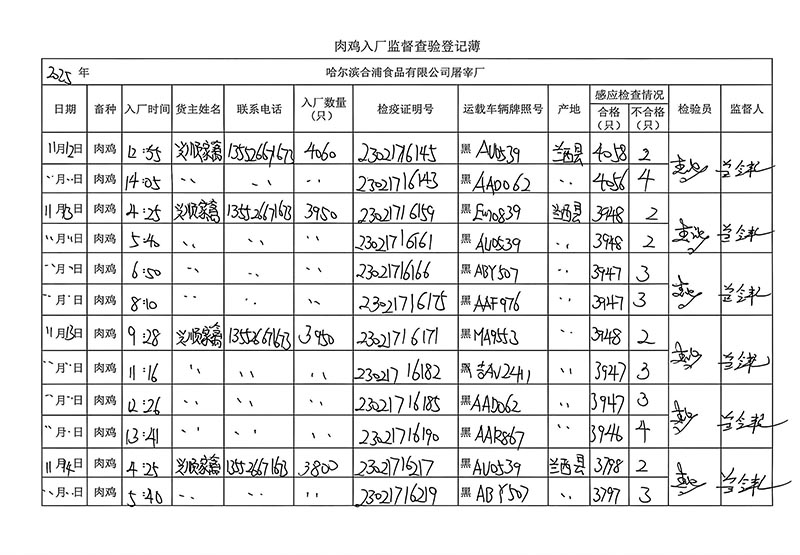 肉鸡入厂监督查验登记薄
2025 年 哈尔滨合浦食品有限公司屠宰厂
日期 畜种 入厂时间 货主姓名 联系电话 入厂数量(只) 检疫证明号 运载车辆牌照号 产地 感应检查情况 合格(只) 不合格(只) 检验员 监督人
11月12日 肉鸡 12:55 兴顺家禽 13552667673 4060 2302716145 黑AU0539 兰西县 4058 2
〃月〃日 肉鸡 14:05 〃 〃 〃 23021716143 黑AAD062 〃 4056 4
11月13日 肉鸡 4:25 兴顺家禽 13552667673 3950 23021716159 黑 兰西县 3948 2
肉鸡 5:40 〃 〃 〃 23021716161 黑AU0539 〃 3948 2
〃月〃日 肉鸡 6:50 〃 〃 〃 23021716166 黑ABY507 〃 3947 3
〃月〃日 肉鸡 8:10 〃 〃 〃 23021716175 黑AAF976 〃 3947 3
11月13日 肉鸡 9:28 兴顺家禽 13552667673 3950 23021716171 黑MA9553 〃 3948 2
〃月〃日 肉鸡 11:16 〃 〃 〃 230217 16182 黑吉AV2411 〃 3947 3
〃月〃日 肉鸡 12:26 〃 〃 〃 23021716185 黑AAD062 〃 3947 3
〃月〃日 肉鸡 13:41 〃 〃 〃 23021716190 黑AAR867 〃 3946 4
11月14日 肉鸡 4:25 兴顺家禽 13552667673 3800 23021716217 黑AU0539 兰西县 3798 2
〃月〃日 肉鸡 5:40 〃 〃 〃 23021716219 黑ABY507 〃 3797 3